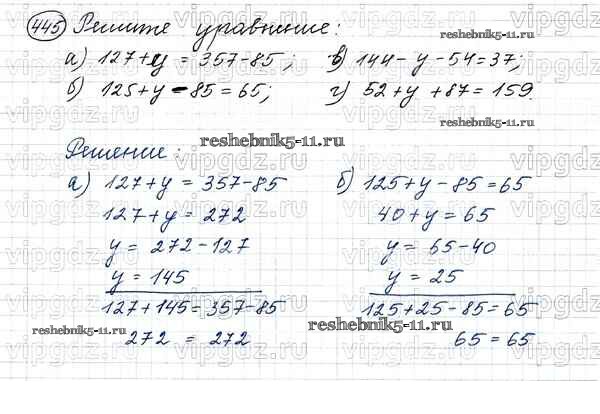 445 Решите уравнение:
а) 127+y = 357-85; в) 144-y-54=37;
б) 125+y-85=65; г) 52+y+87=159.
Решение:
а) 127+y = 357-85 б) 125+y-85=65
127+y = 272 40+y = 65
y = 272-127 y = 65-40
y = 145 y = 25
127+145=357-85 125+25-85=65
272 = 272 65 = 65
reshebnik5-11.ru
reshebnik5-11.ru
reshebnik5-11.ru
reshebnik5-11.ru
reshebnik5-11.ru
vipgdz.ru